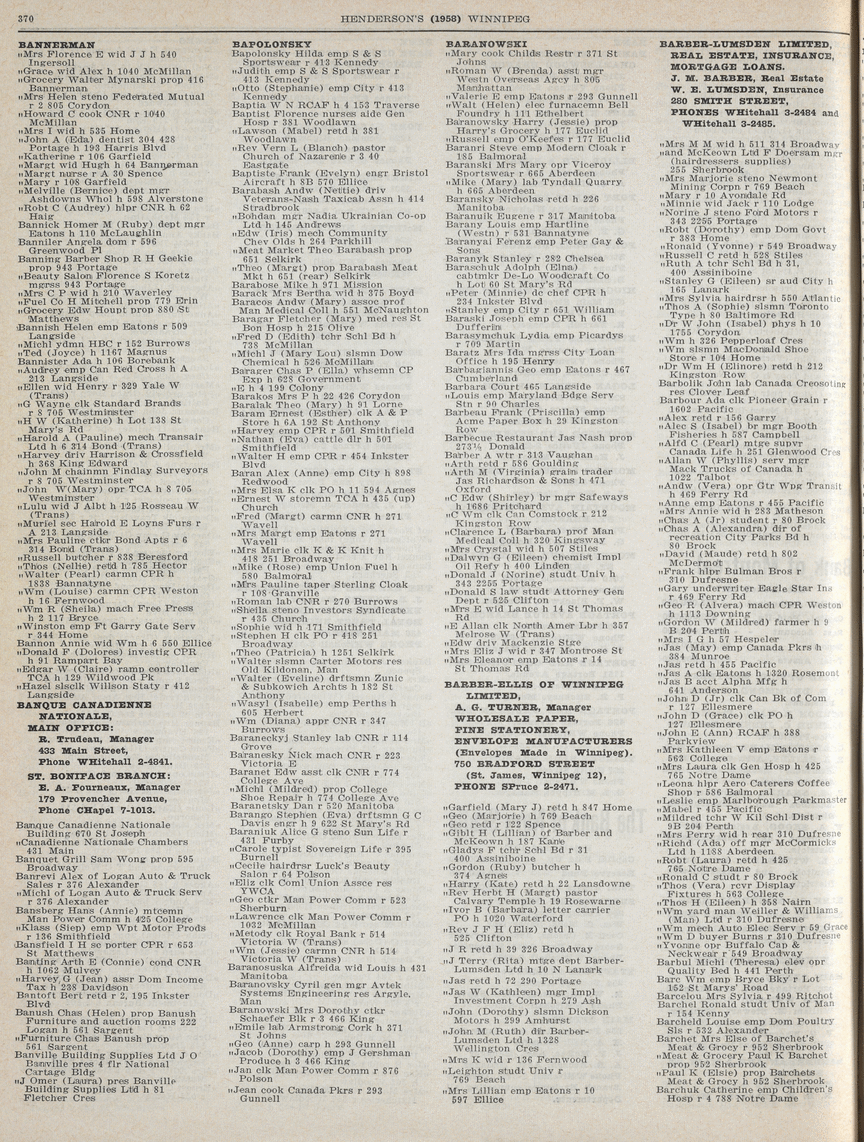 370
HENDERSON'S (1958) WINNIPEG
BANNERMAN
„Mrs Florence E wid J J h 540
Ingersoll
„Grace wid Alex h 1040 McMillan
„Grocery Walter Mynarski prop 416
Bannerman
„Mrs Helen steno Federated Mutual
r 2 805 Corydon
„Howard C cook CNR r 1040
McMillan
„Mrs I wid h 535 Home
„John A (Eda) dentist 304 428
Portage h 193 Harris Blvd
„Katherine r 106 Garfield
„Margt wid Hugh h 64 Bannerman
„Margt nurse r A 30 Spence
„Mary r 108 Garfield
„Melville (Bernice) dept mgr
Ashdowns Whol h 598 Alverstone
„Robt C (Audrey) hlpr CNR h 62
Haig
Bannick Homer M (Ruby) dept mgr
Eatons h 110 McLaughlin
Banniler Angela dom r 596
Greenwood Pl
Banning Barber Shop R H Geekie
prop 943 Portage
„Beauty Salon Florence S Koretz
mgrss 943 Portage
„Mrs C P wid h 210 Waverley
„Fuel Co H Mitchell prop 779 Erin
„Grocery Edw Houpt prop 880 St
Matthews
Bannish Helen emp Eatons r 509
Langside
„Michl ydmn HBC r 152 Burrows
„Ted (Joyce) h 1167 Magnus
Bannister Ada h 106 Borebank
„Audrey emp Can Red Cross h A
213 Langside
„Ellen wid Henry r 329 Yale W
(Trans)
„G Wayne clk Standard Brands
r 8 705 Westminster
„H W (Katherine) h Lot 138 St
Mary's Rd
„Harold A (Pauline) mech Transair
Ltd h 6 314 Bond (Trans)
„Harvey driv Harrison & Crossfield
h 368 King Edward
„John M chainmn Findlay Surveyors
r 8 705 Westminster
„John W(Mary) opr TCA h 8 705
Westminster
„Lulu wid J Albt h 125 Rosseau W
(Trans)
„Muriel sec Harold E Loyns Furs r
A 213 Langside
„Mrs Pauline ctkr Bond Apts r 6
314 Bond (Trans)
„Russell butcher r 838 Beresford
„Thos (Nellie) retd h 785 Hector
„Walter (Pearl) carmn CPR h
1838 Bannatyne
„Wm (Louise) carmn CPR Weston
h 16 Fernwood
„Wm R (Sheila) mach Free Press
h 2 117 Bryce
„Winston emp Ft Garry Gate Serv
r 344 Home
Bannon Annie wid Wm h 6 550 Ellice
„Donald F (Dolores) investig CPR
h 91 Rampart Bay
„Edgar W (Claire) ramp controller
TCA h 129 Wildwood Pk
„Hazel slsclk Willson Staty r 412
Langside
BANQUE CANADIENNE
NATIONALE,
MAIN OFFICE:
R. Trudeau, Manager
433 Main Street,
Phone WHitehall 2-4841.
ST. BONIFACE BRANCH:
E. A. Fourneaux, Manager
179 Provencher Avenue,
Phone CHapel 7-1013.
Banque Canadienne Nationale
Building 670 St Joseph
„Canadienne Nationale Chambers
431 Main
Banquet Grill Sam Wong prop 595
Broadway
Banrevi Alex of Logan Auto & Truck
Sales r 376 Alexander
„Michl of Logan Auto & Truck Serv
r 376 Alexander
Bansberg Hans (Annie) mtcemn
Man Power Comm h 425 College
„Klass (Siep) emp Wpt Motor Prods
r 136 Smithfield
Bansfield I H sc porter CPR r 653
St Matthews
Banting Arth E (Connie) cond CNR
h 1062 Mulvey
„Harvey G (Jean) assr Dom Income
Tax h 238 Davidson
Bantoft Bert retd r 2, 195 Inkster
Blvd
Banush Chas (Helen) prop Banush
Furniture and auction rooms 222
Logan h 561 Sargent
„Furniture Chas Banush prop
561 Sargent
Banville Building Supplies Ltd J O
Banville pres 4 flr National
Cartage Bldg
„J Omer (Laura) pres Banville
Building Supplies Ltd h 81
Fletcher Cres
BAPOLONSKY
Bapolonsky Hilda emp S & S
Sportswear r 413 Kennedy
„Judith emp S & S Sportswear r
413 Kennedy
„Otto (Stephanie) emp City r 413
Kennedy
Baptia W N RCAF h 4 153 Traverse
Baptist Florence nurses aide Gen
Hosp r 381 Woodlawn
„Lawson (Mabel) retd h 381
Woodlawn
„Rev Vern L (Blanch) pastor
Church of Nazarene r 3 40
Eastgate
Baptiste Frank (Evelyn) engr Bristol
Aircraft h 8B 570 Ellice
Barabash Andw (Nettie) driv
Veterans-Nash Taxicab Assn h 414
Stradbrook
„Bohdan mgr Nadia Ukrainian Co-op
Ltd h 145 Andrews
„Edw (Iris) mech Community
Chev Olds h 264 Parkhill
„Meat Market Theo Barabash prop
651 Selkirk
„Theo (Margt) prop Barabash Meat
Mkt h 651 (rear) Selkirk
Barabose Mike h 971 Mission
Barack Mrs Bertha wid h 375 Boyd
Baracos Andw (Mary) assoc prof
Man Medical Coll h 551 McNaughton
Baragar Fletcher (Mary) med res St
Bon Hosp h 215 Olive
„Fred D (Edith) tchr Schl Bd h
738 McMillan
„Michl J (Mary Lou) slsmn Dow
Chemical h 526 McMillan
Barager Chas P (Ella) whsemn CP
Exp h 628 Government
„E h 4 1999 Colony
Barakos Mrs P h 22 426 Corydon
Baralak Theo (Mary) h 91 Lorne
Baram Ernest (Esther) clk A & P
Store h 6A 192 St Anthony
„Harvey emp CPR r 501 Smithfield
„Nathan (Eva) cattle dlr h 501
Smithfield
„Walter H emp CPR r 454 Inkster
Blvd
Baran Alex (Anne) emp City h 898
Redwood
„Mrs Elsa K clk PO h 11 594 Agnes
„Ernest W storemn TCA h 435 (up)
Church
„Fred (Margt) carmn CNR h 271
Wavell
„Mrs Margt emp Eatons r 271
Wavell
„Mrs Marie clk K & K Knit h
418 251 Broadway
„Mike (Rose) emp Union Fuel h
580 Balmoral
„Mrs Pauline taper Sterling Cloak
r 108 Granville
„Roman lab CNR r 270 Burrows
„Sheila steno Investors Syndicate
r 435 Church
„Sophie wid h 171 Smithfield
„Stephen H clk PO r 418 251
Broadway
„Theo (Patricia) h 1251 Selkirk
„Walter slsmn Carter Motors res
Old Kildonan, Man
„Walter (Eveline) drftsmn Zunic
& Subkovich Archts h 182 St
Anthony
„Wasyl (Isabelle) emp Perths h
605 Herbert
„Wm (Diana) appr CNR r 347
Burrows
Baraneckyj Stanley lab CNR r 114
Grove
Baranesky Nick mach CNR r 223
Victoria E
Baranet Edw asst clk CNR r 774
College Ave
„Michl (Mildred) prop College
Shoe Repair h 774 College Ave
Baranetsky Dan r 520 Manitoba
Barango Stephen (Eva) drftsmn G C
Davis engr h 9 622 St Mary's Rd
Baraniuk Alice G steno Sun Life r
431 Furby
„Carole typist Sovereign Life r 395
Burnell
„Cecile hairdrsr Luck's Beauty
Salon r 64 Polson
„Eliz clk Coml Union Assce res
YWCA
„Geo ctkr Man Power Comm r 523
Sherburn
„Lawrence clk Man Power Comm r
1032 McMillan
„Metody clk Royal Bank r 514
Victoria W (Trans)
„Wm (Jessie) carmn CNR h 514
Victoria W (Trans)
Baranosuska Alfreida wid Louis h 431
Manitoba
Baranovsky Cyril gen mgr Avtek
Systems Engineering res Argyle,
Man
Baranowski Mrs Dorothy ctkr
Schaefer Blk r 3 466 King
„Emile lab Armstrong Cork h 371
St Johns
„Geo (Anne) carp h 293 Gunnell
„Jacob (Dorothy) emp J Gershman
Produce h 3 466 King
„Jan clk Man Power Comm r 876
Polson
„Jean cook Canada Pkrs r 293
Gunnell
BARANOWSKI
„Mary cook Childs Restr r 371 St
Johns
„Roman W (Brenda) asst mgr
Westn Overseas Agcy h 805
Manhattan
„Valerie H emp Eatons r 293 Gunnell
„Walt (Helen) elec furnacemn Bell
Foundry h 111 Ethelbert
Baranowsky Harry (Jessie) prop
Harry's Grocery h 177 Euclid
„Russell emp O'Keefes r 177 Euclid
Baranri Steve emp Modern Cloak r
185 Balmoral
Baranski Mrs Mary opr Viceroy
Sportswear r 665 Aberdeen
„Mike (Mary) lab Tyndall Quarry
h 665 Aberdeen
Baransky Nicholas retd h 226
Manitoba
Baranuik Eugene r 317 Manitoba
Barany Louis emp Hartline
(Westn) r 531 Bannatyne
Baranyai Ferenz emp Peter Gay &
Sons
Baranyk Stanley r 282 Chelsea
Baraschuk Adolph (Elna)
cabtmkr De-Lo Woodcraft Co
h Lot 60 St Mary's Rd
„Peter (Minnie) dc chef CPR h
234 Inkster Blvd
„Stanley emp City r 651 William
Baraski Joseph emp CPR h 661
Dufferin
Barasymchuk Lydia emp Picardys
r 709 Martin
Baratz Mrs Ida mgrss City Loan
Office h 195 Henry
Barbagiannis Geo emp Eatons r 467
Cumberland
Barbara Court 465 Langside
„Louis emp Maryland Bdge Serv
Stn r 90 Charles
Barbeau Frank (Priscilla) emp
Acme Paper Box h 29 Kingston
Row
Barbecue Restaurant Jas Nash prop
273½ Donald
Barber A wtr r 313 Vaughan
„Arth retd r 586 Goulding
„Arth M (Virginia) grain trader
Jas Richardson & Sons h 471
Oxford
„C Edw (Shirley) br mgr Safeways
h 1686 Pritchard
„C Wm clk Can Comstock r 212
Kingston Row
„Clarence L (Barbara) prof Man
Medical Coll h 320 Kingsway
„Mrs Crystal wid h 507 Stiles
„Dalwyn G (Eileen) chemist Impl
Oil Refy h 400 Linden
„Donald J (Norine) studt Univ h
343 2255 Portage
„Donald S law studt Attorney Gen
Dept r 525 Clifton
„Mrs E wid Lance h 14 St Thomas
Rd
„E Allan clk North Amer Lbr h 357
Melrose W (Trans)
„Edw driv Mackenzie Stge
„Mrs Eliz J wid r 347 Montrose St
„Mrs Eleanor emp Eatons r 14
St Thomas Rd
BARBER-ELLIS OF WINNIPEG
LIMITED,
A. G. TURNER, Manager
WHOLESALE PAPER,
FINE STATIONERY,
ENVELOPE MANUFACTURERS
(Envelopes Made in Winnipeg).
750 BRADFORD STREET
(St. James, Winnipeg 12),
PHONE SPruce 2-2471.
„Garfield (Mary J) retd h 847 Home
„Geo (Marjorie) h 769 Beach
„Geo retd r 122 Spence
„Giblt H (Lillian) of Barber and
McKeown h 187 Kane
„Gladys F tchr Schl Bd r 31
400 Assiniboine
„Gordon (Ruby) butcher h
374 Agnes
„Harry (Kate) retd h 22 Lansdowne
„Rev Herbt H (Margt) pastor
Calvary Temple h 19 Rosewarne
„Ivor B (Barbara) letter carrier
PO h 1020 Waterford
„Rev J F H (Eliz) retd h
525 Clifton
„J R retd h 39 326 Broadway
„J Terry (Rita) mtge dept Barber-
Lumsden Ltd h 10 N Lanark
„Jas retd h 72 290 Portage
„Jas W (Kathleen) mgr Impl
Investment Corpn h 279 Ash
„John (Dorothy) slsmn Dickson
Motors h 299 Amhurst
„John M (Ruth) dir Barber-
Lumsden Ltd h 1328
Wellington Cres
„Mrs K wid r 136 Fernwood
„Leighton studt Univ r
769 Beach
„Mrs Lillian emp Eatons r 10
597 Ellice
BARBER-LUMSDEN LIMITED,
REAL ESTATE, INSURANCE,
MORTGAGE LOANS.
J. M. BARBER, Real Estate
W. E. LUMSDEN, Insurance
280 SMITH STREET,
PHONES WHitehall 3-2484 and
WHitehall 3-2485.
„Mrs M M wid h 511 314 Broadway
„and McKeown Ltd F Doersam mgr
(hairdressers supplies)
255 Sherbrook
„Mrs Marjorie steno Newmont
Mining Corpn r 769 Beach
„Mary r 10 Avondale Rd
„Minnie wid Jack r 110 Lodge
„Norine J steno Ford Motors r
343 2255 Portage
„Robt (Dorothy) emp Dom Govt
r 383 Home
„Ronald (Yvonne) r 549 Broadway
„Russell C retd h 528 Stiles
„Ruth A tchr Schl Bd h 31,
400 Assiniboine
„Stanley G (Eileen) sr aud City h
165 Lanark
„Mrs Sylvia hairdrsr h 550 Atlantic
„Thos A (Sophie) slsmn Toronto
Type h 80 Baltimore Rd
„Dr W John (Isabel) phys h 10
1755 Corydon
„Wm h 326 Pepperloaf Cres
„Wm slsmn MacDonald Shoe
Store r 104 Home
„Dr Wm H (Elinore) retd h 212
Kingston Row
Barbolik John lab Canada Creosoting
res Clover Leaf
Barbour Ada clk Pioneer Grain r
1602 Pacific
„Alex retd r 156 Garry
„Alec S (Isabel) br mgr Booth
Fisheries h 587 Campbell
„Alfd C (Pearl) mtge supvr
Canada Life h 251 Glenwood Cres
„Allan W (Phyllis) serv mgr
Mack Trucks of Canada h
1022 Talbot
„Andw (Vera) opr Gtr Wpg Transit
h 469 Ferry Rd
„Anne emp Eatons r 455 Pacific
„Mrs Annie wid h 283 Matheson
„Chas A (Jr) student r 80 Brock
„Chas A (Alexandra) dir of
recreation City Parks Bd h
80 Brock
„David (Maude) retd h 802
McDermot
„Frank hlpr Bulman Bros r
310 Dufresne
„Gary underwriter Eagle Star Ins
r 469 Ferry Rd
„Geo R (Alvera) mach CPR Weston
h 1113 Downing
„Gordon W (Mildred) farmer h 9
B 204 Perth
„Mrs I G h 57 Hespeler
„Jas (May) emp Canada Pkrs h
384 Munroe
„Jas retd h 455 Pacific
„Jas A clk Eatons h 1320 Rosemont
„Jas B acct Alpha Mfg h
641 Anderson
„John D (Jr) clk Can Bk of Com
r 127 Ellesmere
„John D (Grace) clk PO h
127 Ellesmere
„John E (Ann) RCAF h 388
Parkview
„Mrs Kathleen V emp Eatons r
563 College
„Mrs Laura clk Gen Hosp h 425
765 Notre Dame
„Leona hlpr Aero Caterers Coffee
Shop r 586 Balmoral
„Leslie emp Marlborough Parkmaster
„Mabel r 455 Pacific
„Mildred tchr W Kil Schl Dist r
9B 204 Perth
„Mrs Perry wid h rear 310 Dufresne
„Richd (Ada) off mgr McCormicks
Ltd h 1168 Aberdeen
„Robt (Laura) retd h 425
765 Notre Dame
„Ronald C studt r 80 Brock
„Thos (Vera) rcvr Display
Fixtures h 563 College
„Thos H (Eileen) h 358 Nairn
„Wm yard man Weiller & Williams
(Man) Ltd r 310 Dufresne
„Wm mech Auto Elec Serv r 59 Grace
„Wm D buyer Burns r 310 Dufresne
„Yvonne opr Buffalo Cap &
Neckwear r 549 Broadway
Barbul Michl (Theresa) elev opr
Quality Bed h 441 Perth
Barc Wm emp Bryce Bky r Lot
152 St Marys' Road
Barcelou Mrs Sylvia r 499 Ritchot
Barchel Ronald studt Univ of Man
r 154 Kenny
Barcheld Louise emp Dom Poultry
Sls r 532 Alexander
Barchet Mrs Else of Barchet's
Meat & Grocy r 952 Sherbrook
„Meat & Grocery Paul K Barchet
prop 952 Sherbrook
„Paul K (Elsie) prop Barchets
Meat & Grocy h 952 Sherbrook
Barchuk Catherine emp Children's
Hosp r 4 788 Notre Dame